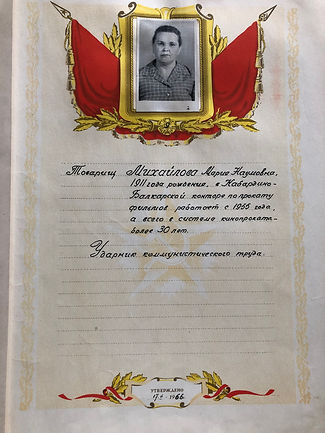 Товарищ Михайлова Мария Наумовна,
1911 года рождения, в Кабардино-
Балкарской конторе по прокату
фильмов работает с 1955 года,
а всего в системе кинопроката-
более 30 лет.
Ударник коммунистического труда.
УТВЕРЖДЕНО
1966